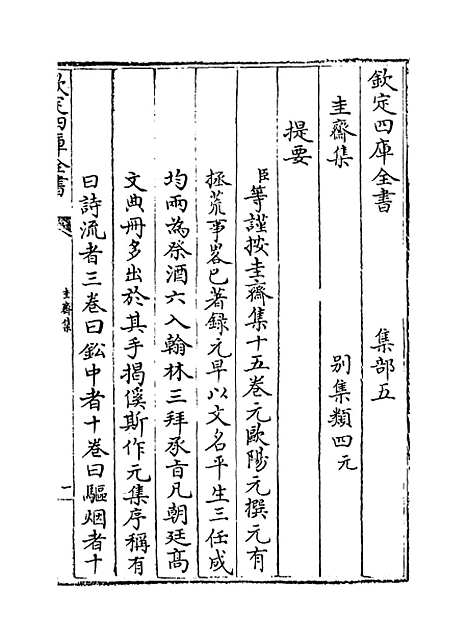 欽定四庫全書
集部五
圭齋集
別集類四元
提要
臣等謹按圭齋集十五卷元歐陽元撰元有
拯荒事畧已著録元早以文名平生三任成
均兩為祭酒六入翰林三拜承旨凡朝廷髙
文典冊多出於其手揭傒斯作元集序稱有
曰詩流者三卷曰鈆中者十卷曰驅烟者十
欽定四庫全書
圭齋集
一